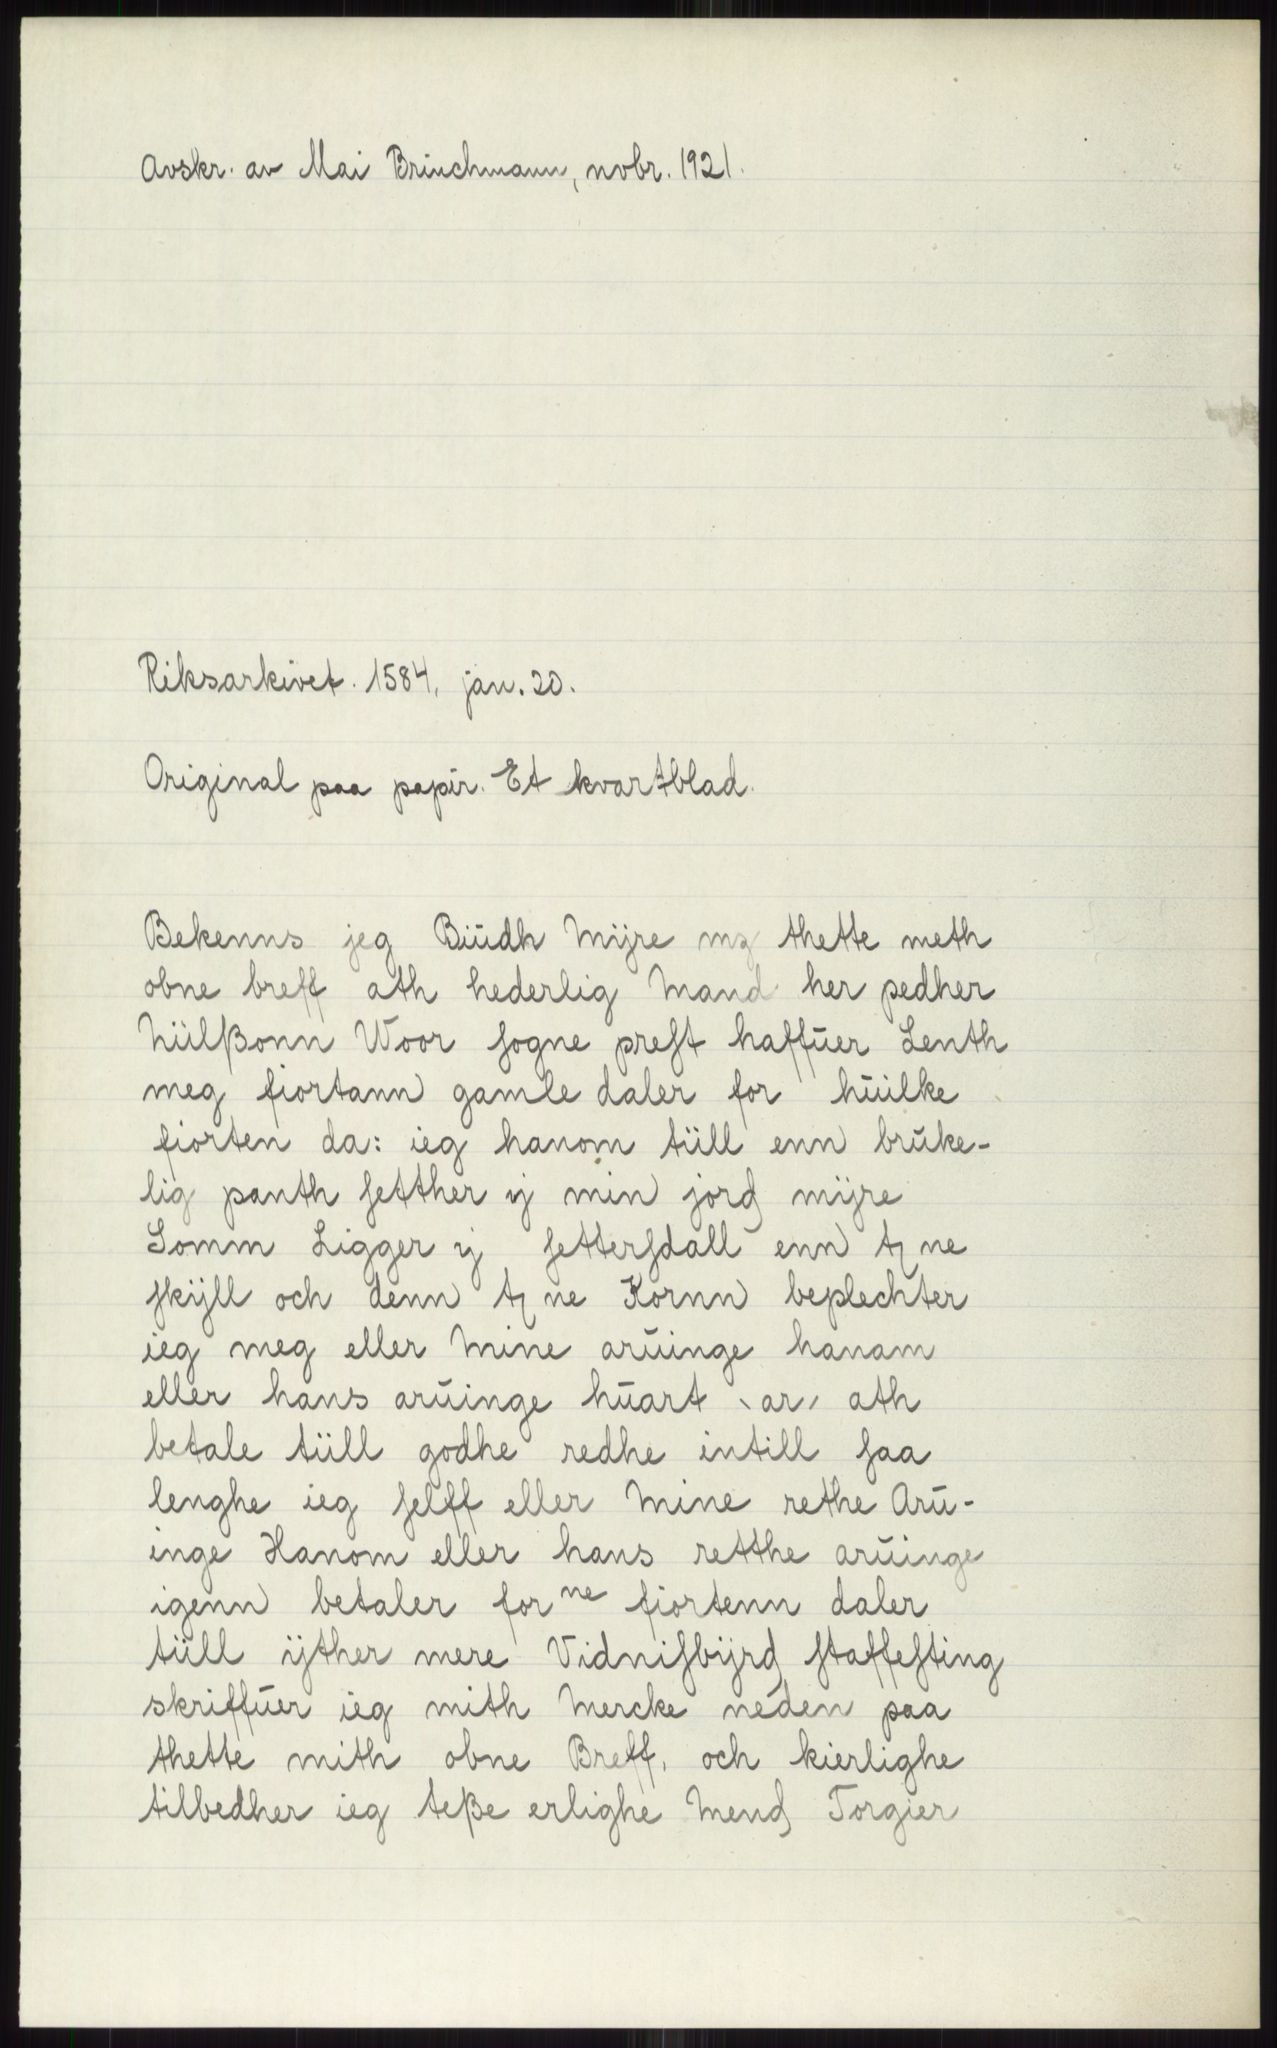 Avskr. av Mai Brinchmann, nvbr. 1921.
Riksarkivet. 1584, jan. 20.
Original paa papir. Et kvartblad.
Bekenns jeg Biŭdh Mÿre mz thette meth
obne breff ath hederlig Mand her pedher
Nülßonn Woor ſogne preſt haffŭer Lenth
meg fiortann gamle daler for hŭilke
fiorten da: ieg hanom tüll enn brŭke-
lig panth ſetther ÿ min jord mÿre
Somm Ligger ÿ ſetterſdall enn tꝫ ne
ſkÿll och denn tꝫ ne Kornn beplechter
ieg meg eller Mine arŭinge hanam
eller hans arŭinge hŭart ˋarˊ ath
betale tüll godhe redhe intill ſaa
lenghe ieg ſelff eller Mine rethe Arŭ-
inge Hanom eller hans retthe arŭinge
igenn betaler for ne fiortenn daler
tüll ÿther mere Vidniſbÿrd ſtaffeſting
skriffŭer ieg mith Mercke neden paa
thette mith obne Breff, och kierlighe
tilbedher ieg teße erlighe Mend Torgier